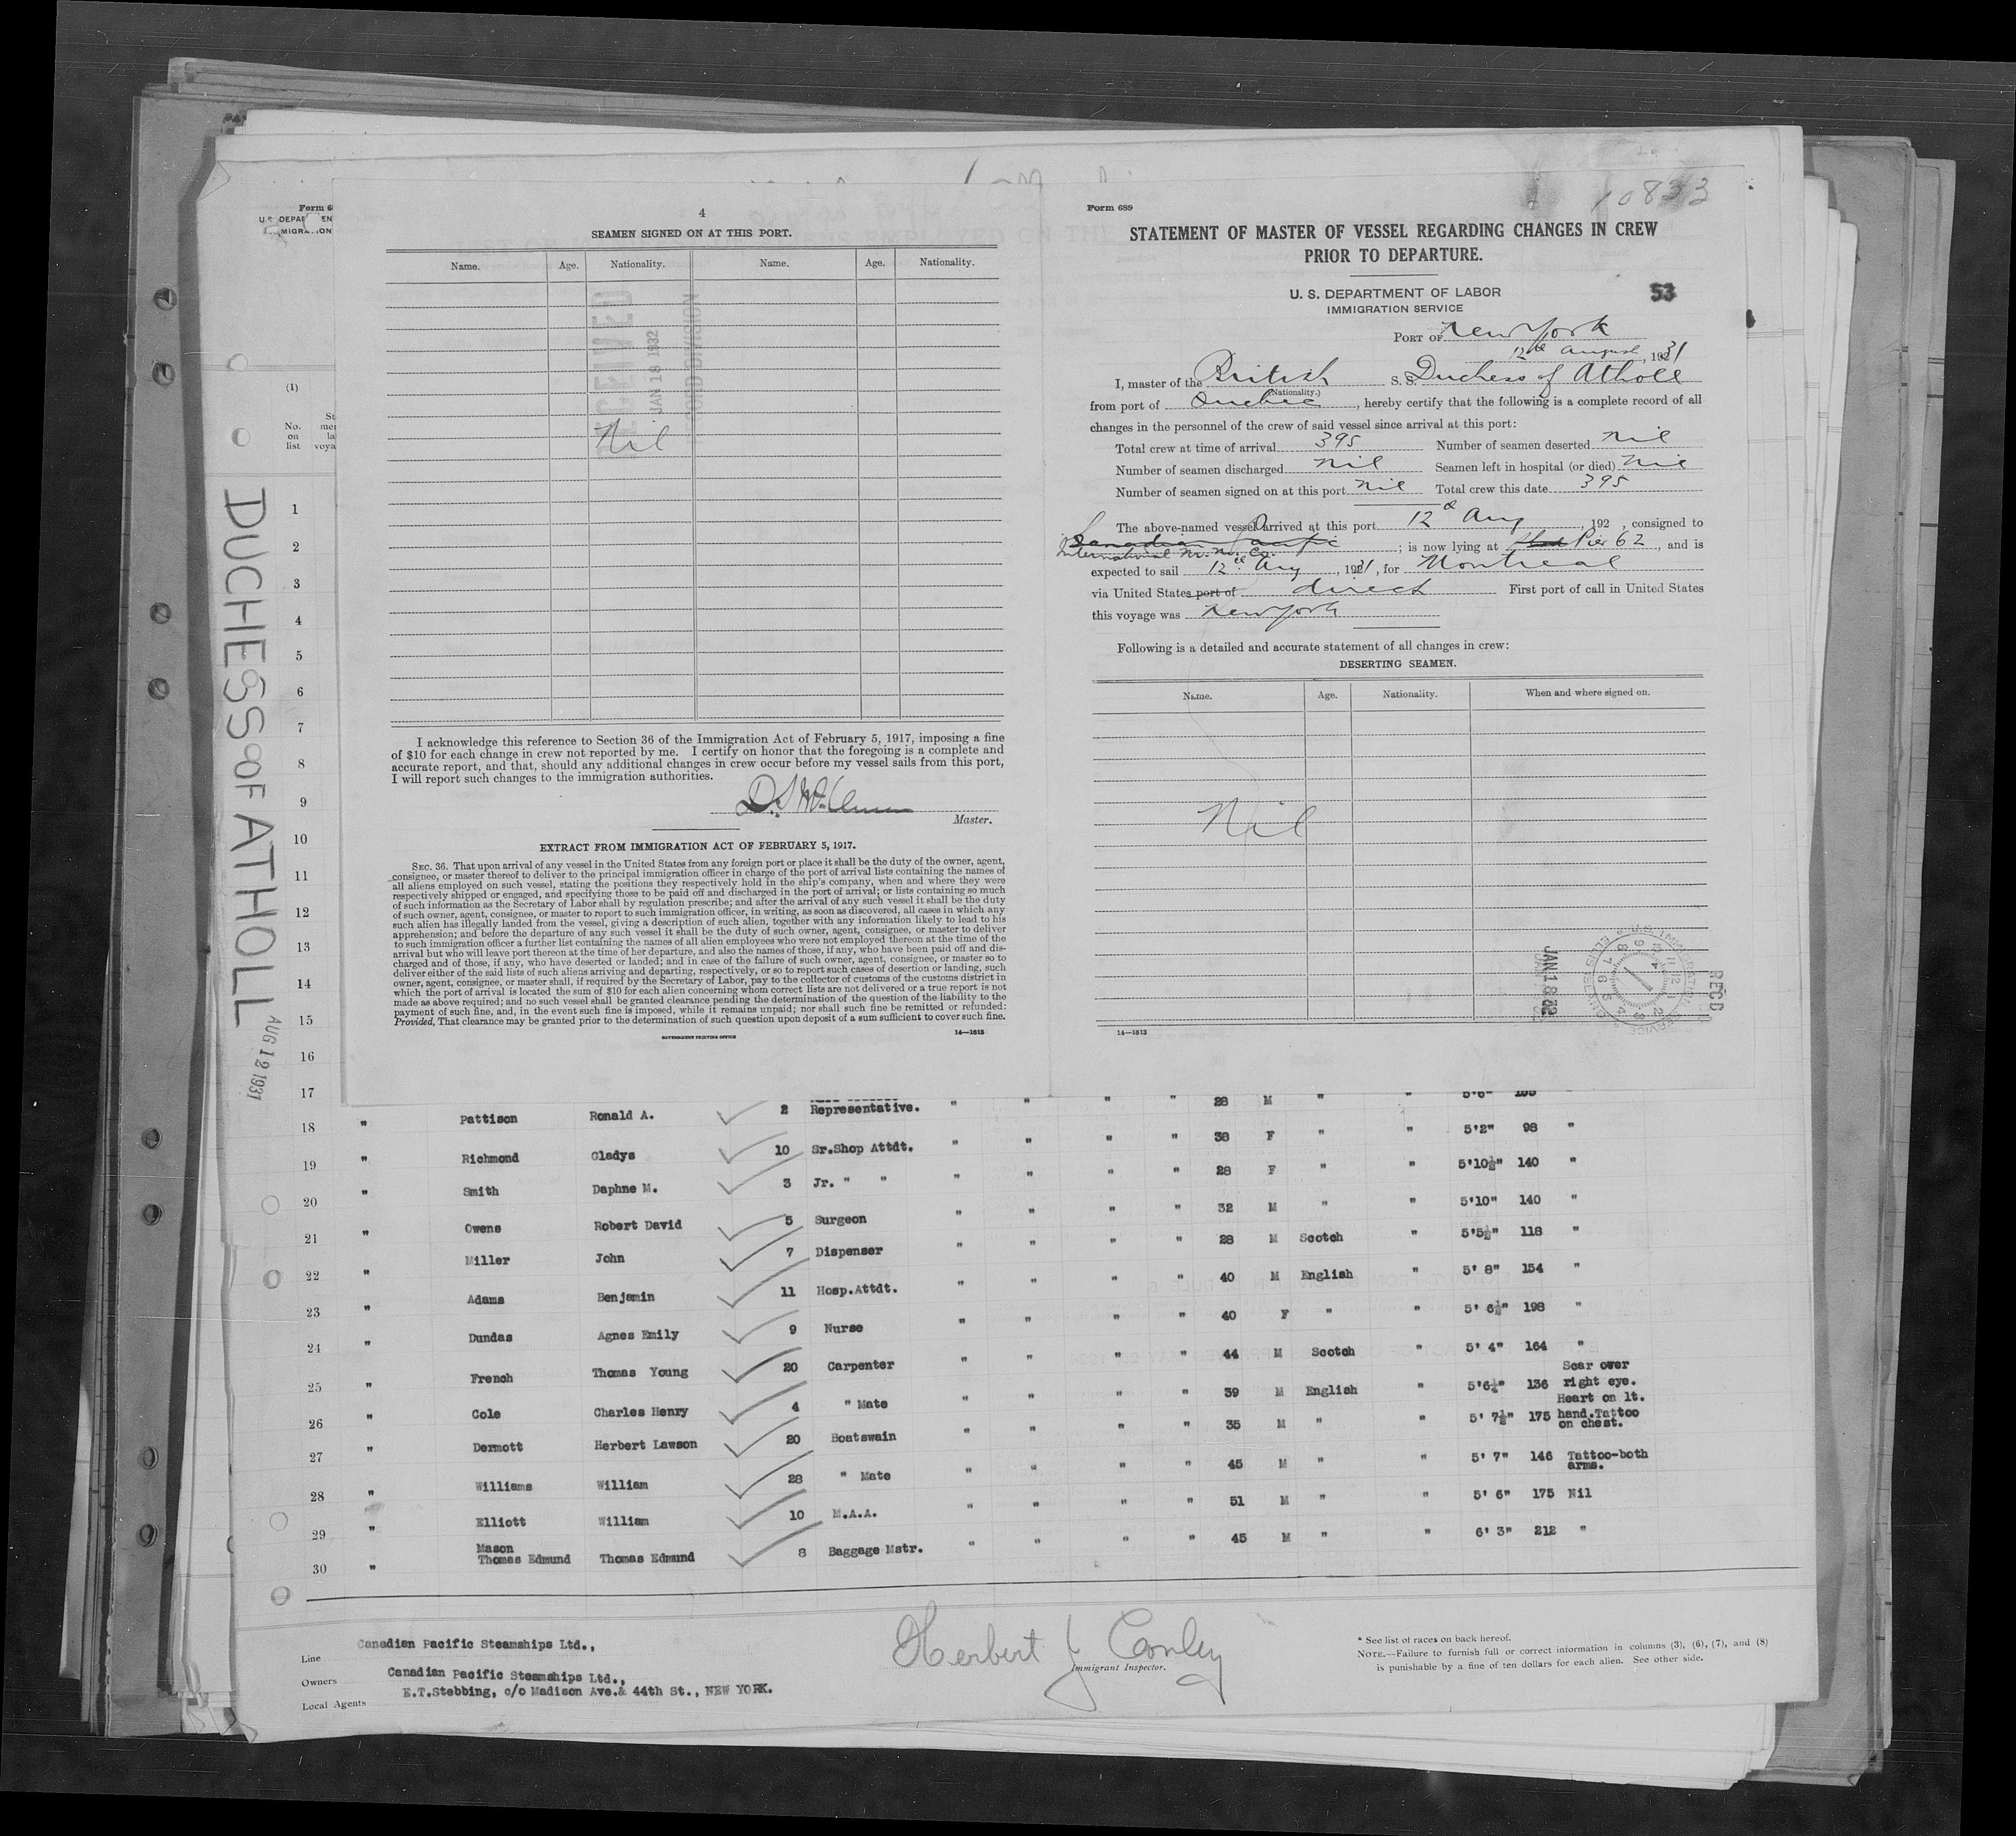 10833
Form 6
U. S. DEPA EN
MIGRA ION
(1)
No.
on
list
4
SEAMEN SIGNED ON AT THIS PORT.
Name. Age. Nationality. Name. Age. Nationality.
JAN 18 1932
Nil
I acknowledge this reference to Section 36 of the Immigration Act of February 5, 1917, imposing a fine
of $10 for each change in crew not reported by me. I certify on honor that the foregoing is a complete and
accurate report, and that, should any additional changes in crew occur before my vessel sails from this port,
I will report such changes to the immigration authorities.
Master.
EXTRACT FROM IMMIGRATION ACT OF FEBRUARY 5, 1917.
SEC. 36. That upon arrival of any vessel in the United States from any foreign port or place it shall be the duty of the owner, agent,
consignee, or master thereof to deliver to the principal immigration officer in charge of the port of arrival lists containing the names of
all aliens employed on such vessel, stating the positions they respectively hold in the ship's company, when and where they were
respectively shipped or engaged, and specifying those to be paid off and discharged in the port of arrival; or lists containing so much
of such information as the Secretary of Labor shall by regulation prescribe; and after the arrival of any such vessel it shall be the duty
of such owner, agent, consignee, or master to report to such immigration officer, in writing, as soon as discovered, all cases in which any
such alien has illegally landed from the vessel, giving a description of such alien, together with any information likely to lead to his
apprehension; and before the departure of any such vessel it shall be the duty of such owner, agent, consignee, or master to deliver
to such immigration officer a further list containing the names of all alien employees who were not employed thereon at the time of the
arrival but who will leave port thereon at the time of her departure, and also the names of those, if any, who have been paid off and dis-
charged and of those, if any, who have deserted or landed; and in case of the failure of such owner, agent, consignee, or master so to
deliver either of the said lists of such aliens arriving and departing, respectively, or so to report such cases of desertion or landing, such
owner, agent, consignee, or master shall, if required by the Secretary of Labor, pay to the collector of customs of the customs district in
which the port of arrival is located the sum of $10 for each alien concerning whom correct lists are not delivered or a true report is not
made as above required; and no such vessel shall be granted clearance pending the determination of the question of the liability to the
payment of such fine, and, in the event such fine is imposed, while it remains unpaid; nor shall such fine be remitted or refunded:
Provided, That clearance may be granted prior to the determination of such question upon deposit of a sum sufficient to cover such fine.
GOVERNMENT PRINTING OFFICE 14—1613
Form 689
STATEMENT OF MASTER OF VESSEL REGARDING CHANGES IN CREW
PRIOR TO DEPARTURE.
U. S. DEPARTMENT OF LABOR
IMMIGRATION SERVICE
53
PORT OF New York
12th August, 1931
I, master of the British S. S. Duchess of Atholl
(Nationality.)
from port of Quebec, hereby certify that the following is a complete record of all
changes in the personnel of the crew of said vessel since arrival at this port:
Total crew at time of arrival 395 Number of seamen deserted Nil
Number of seamen discharged Nil Seamen left in hospital (or died) Nil
Number of seamen signed on at this port Nil Total crew this date 395
The above-named vessel arrived at this port 12th Aug, 192 , consigned to
Canadian Pacific
International M. M. Co. ; is now lying at Pier 62, and is
expected to sail 12th Aug, 1931, for Montreal
via United States port of direct First port of call in United States
this voyage was New York
Following is a detailed and accurate statement of all changes in crew:
DESERTING SEAMEN.
Name. Age. Nationality. When and where signed on.
Nil
JAN 18 32
REC'D
14—1613
DUCHESS OF ATHOLL AUG 12 1931
1
2
3
4
5
6
7
8
9
10
11
12
13
14
15
16
17
18 " Pattison Ronald A. 2 Representative. " " " " 28 M " " 5'6"
19 " Richmond Gladys 10 Sr.Shop Attdt. " " " " 38 F " " 5'2" 98 "
20 " Smith Daphne M. 3 Jr. " " " " " " 28 F " " 5'10½" 140 "
21 " Owens Robert David 5 Surgeon " " " " 32 M " " 5'10" 140 "
22 " Miller John 7 Dispenser " " " " 28 M Scotch " 5'5½" 118 "
23 " Adams Benjamin 11 Hosp.Attdt. " " " " 40 M English " 5' 8" 154 "
24 " Dundas Agnes Emily 9 Nurse " " " " 40 F " " 5' 6½" 198 "
25 " French Thomas Young 20 Carpenter " " " " 44 M Scotch " 5' 4" 164 "
26 " Cole Charles Henry 4 " Mate " " " " 39 M English " 5'6¼" 136 Scar over right eye.
27 " Dermott Herbert Lawson 20 Boatswain " " " " 35 M " " 5' 7½" 175 Heart on lt. hand.Tattoo on chest.
28 " Williams William 28 " Mate " " " " 45 M " " 5' 7" 146 Tattoo-both arms.
29 " Elliott William 10 M.A.A. " " " " 51 M " " 5' 6" 175 Nil
30 " Mason Thomas Edmund Thomas Edmund 8 Baggage Mstr. " " " " 45 M " " 6' 3" 212 "
Line Canadian Pacific Steamships Ltd.,
Owners Canadian Pacific Steamships Ltd.,
Local Agents E.T.Stebbing, c/o Madison Ave.& 44th St., NEW YORK.
Herbert J Conley
Immigrant Inspector.
* See list of races on back hereof.
NOTE.—Failure to furnish full or correct information in columns (3), (6), (7), and (8)
is punishable by a fine of ten dollars for each alien. See other side.